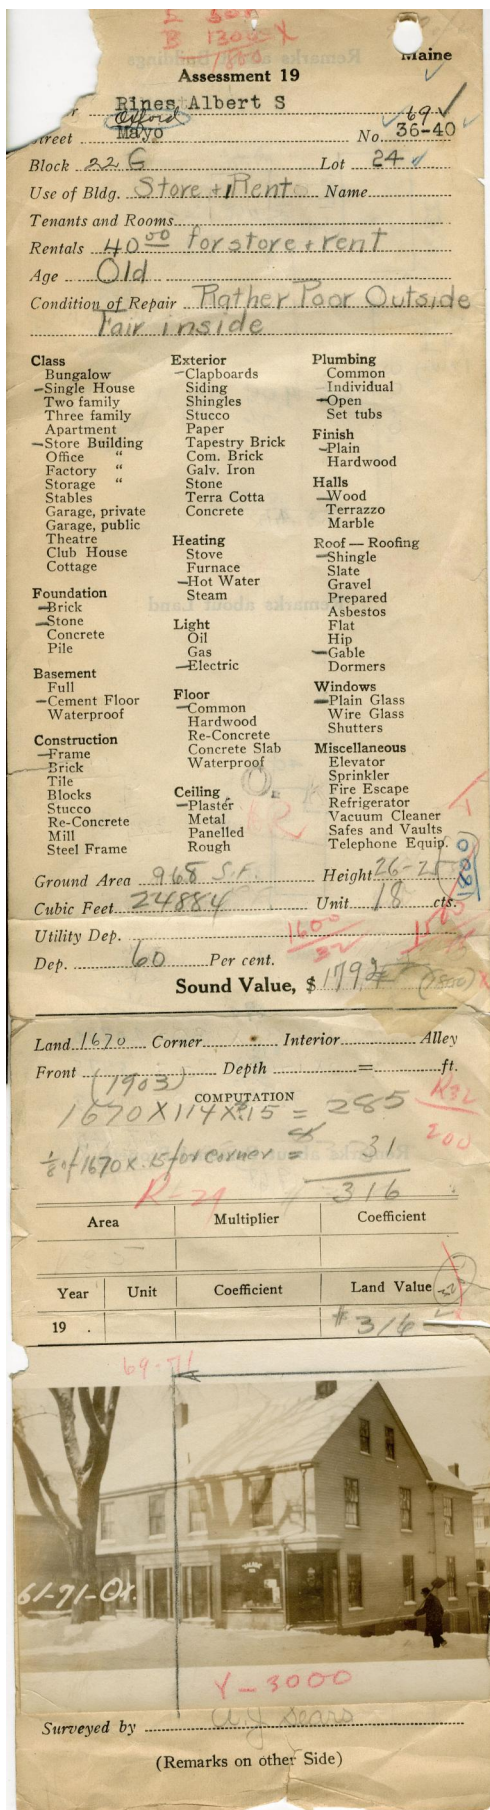 B 1300 X
1800
Maine
Assessment 19
Rines, Albert S
Oxford 69
Street Mayo No. 36-40
Block 22 G Lot 24
Use of Bldg. Store + Rent Name
Tenants and Rooms
Rentals 40 00 for store + rent
Age Old
Condition of Repair Rather Poor Outside
Fair inside
Class
Bungalow
Single House
Two family
Three family
Apartment
Store Building
Office "
Factory "
Storage "
Stables
Garage, private
Garage, public
Theatre
Club House
Cottage
Foundation
Brick
Stone
Concrete
Pile
Basement
Full
Cement Floor
Waterproof
Construction
Frame
Brick
Tile
Blocks
Stucco
Re-Concrete
Mill
Steel Frame
Exterior
Clapboards
Siding
Shingles
Stucco
Paper
Tapestry Brick
Com. Brick
Galv. Iron
Stone
Terra Cotta
Concrete
Heating
Stove
Furnace
Hot Water
Steam
Light
Oil
Gas
Electric
Floor
Common
Hardwood
Re-Concrete
Concrete Slab
Waterproof
Ceiling
Plaster
Metal
Panelled
Rough
Plumbing
Common
Individual
Open
Set tubs
Finish
Plain
Hardwood
Halls
Wood
Terrazzo
Marble
Roof — Roofing
Shingle
Slate
Gravel
Prepared
Asbestos
Flat
Hip
Gable
Dormers
Windows
Plain Glass
Wire Glass
Shutters
Miscellaneous
Elevator
Sprinkler
Fire Escape
Refrigerator
Vacuum Cleaner
Safes and Vaults
Telephone Equip.
1800
Ground Area 968 S.F. Height 26-25
Cubic Feet 24884 Unit 18 cts.
Utility Dep. 1600 1500
32
Dep. 60 Per cent.
Sound Value, $ 1792 (1800)
Land 1670 Corner Interior Alley
Front Depth = ft.
(1903)
COMPUTATION
1670 X 114 X .15 = 285
R32
200
1/8 of 1670 X .15 for corner = 31
R-29 316
Area Multiplier Coefficient
Year Unit Coefficient Land Value
19 . $316
69-71
61-71-Ox.
Y-3000
Surveyed by W J Sears
(Remarks on other Side)